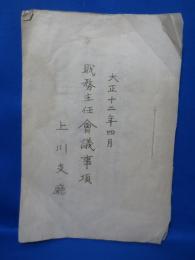 大正十二年四月
戢務主任會議事項
上川支廳